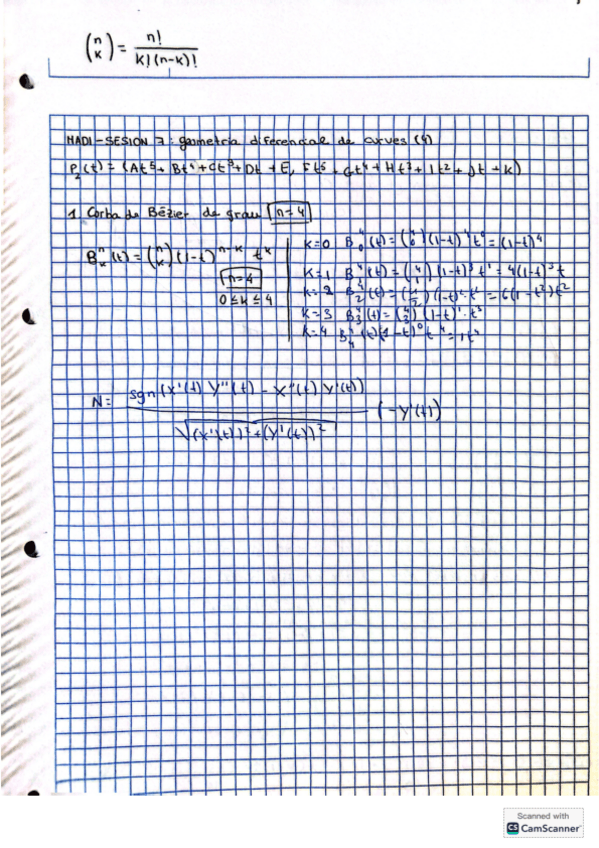 (n k) = n! / k!(n-k)!
HADI-SESION 7: geometria diferencial de curves (4)
P₂(t) = (At⁵ + Bt⁴ + Ct³ + Dt + E, Ft⁵ - Gt⁴ + Ht³ + It² + Jt + K)
1. Corba de Bézier de grau n=4
Bₖⁿ(t) = (n k)(1-t)ⁿ⁻ᵏ tᵏ
n=4
0≤k≤4
k=0 B₀⁴(t) = (4 0)(1-t)⁴t⁰ = (1-t)⁴
k=1 B₁⁴(t) = (4 1)(1-t)³t¹ = 4(1-t)³t
k=2 B₂⁴(t) = (4 2)(1-t)²·t² = 6(1-t²)t²
k=3 B₃⁴(t) = (4 3)(1-t)¹·t³
k=4 B₄⁴(t)(1-t)⁰t⁴ = t⁴
N = sgn(x'(t) y''(t) - x''(t) y'(t)) / √(x'(t))² + (y'(t))² (-y'(t))
Scanned with
CS CamScanner